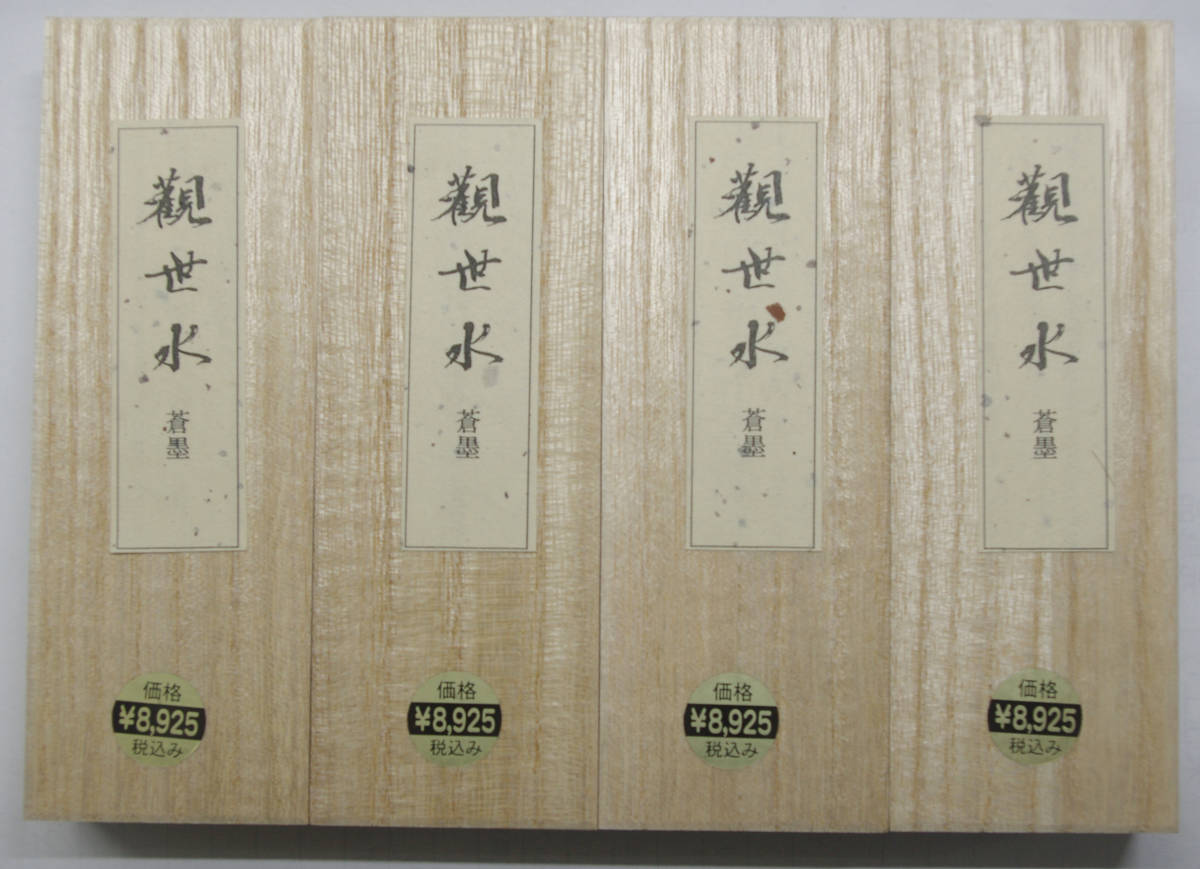 觀世水
蒼墨
価格
¥8,925
税込み
觀世水
蒼墨
価格
¥8,925
税込み
觀世水
蒼墨
価格
¥8,925
税込み
觀世水
蒼墨
価格
¥8,925
税込み